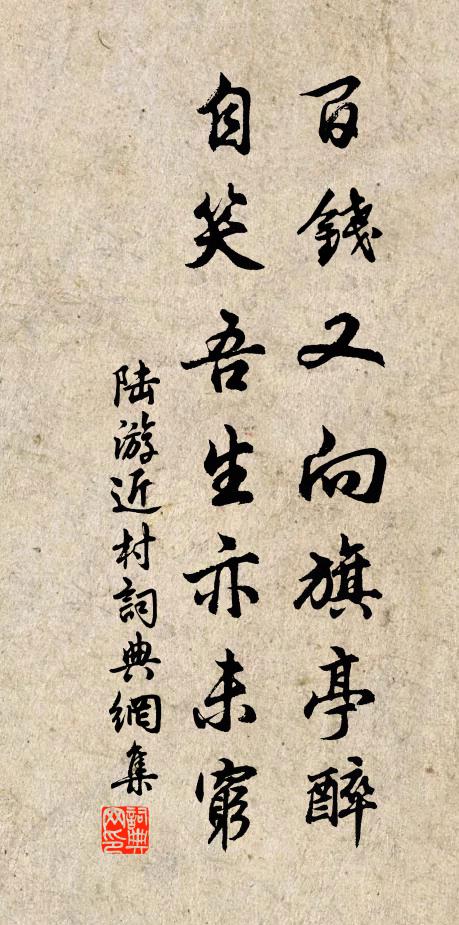 百錢又向旗亭醉
自笑吾生亦未窮
陆游近村詞典網集
詞典网印